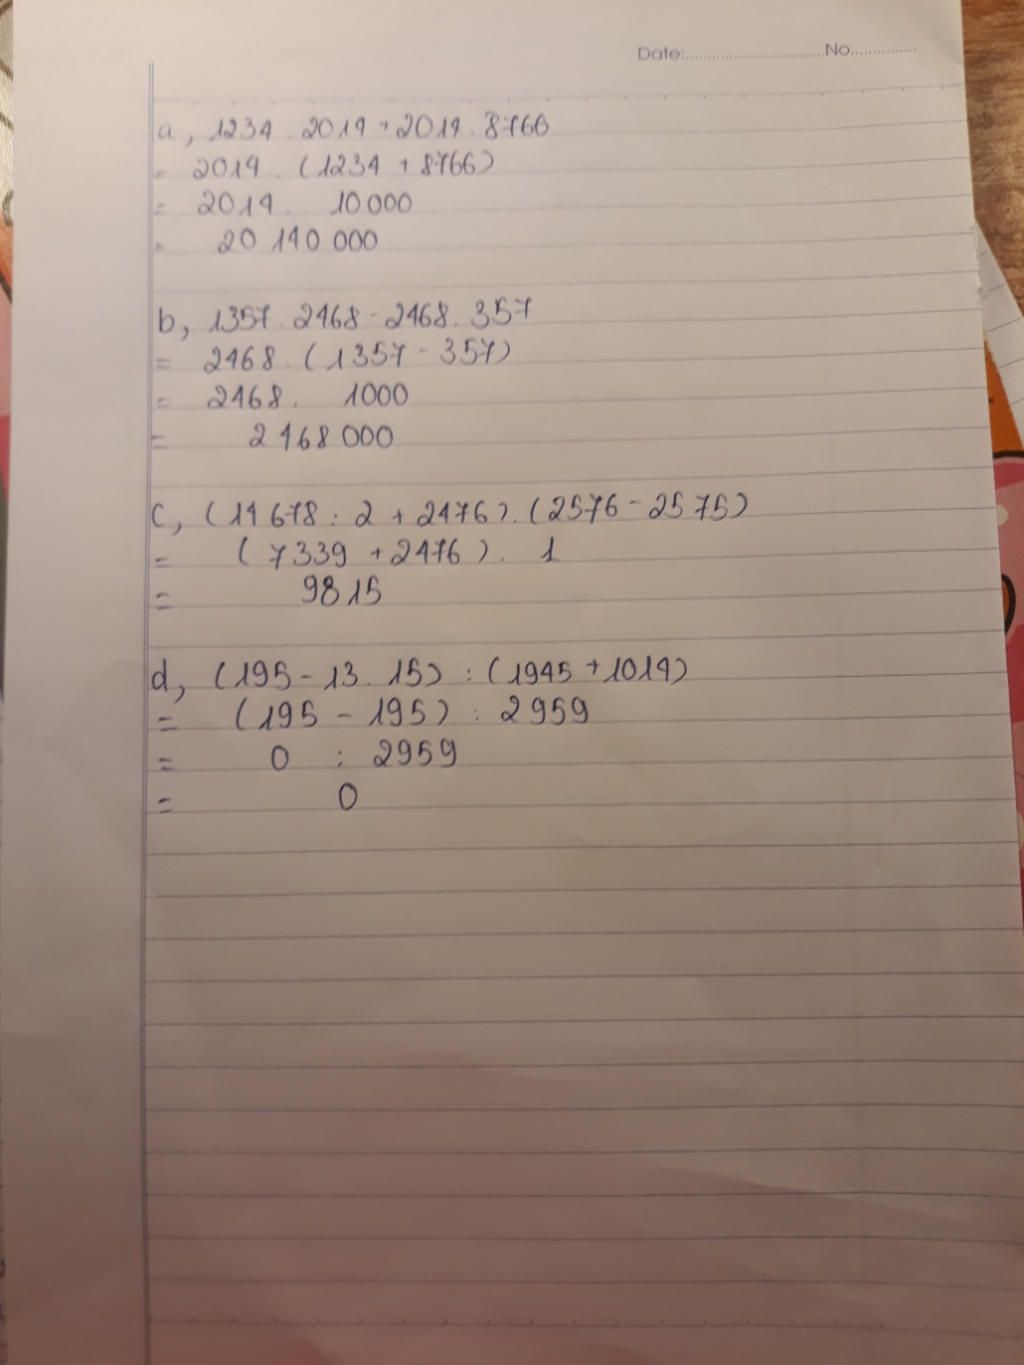 Date:..............................No...............
a, 1234 . 2014 + 2014 . 8766
= 2014 . (1234 + 8766)
= 2014 . 10000
= 20 140 000
b, 1357 . 2468 - 2468 . 357
= 2468 . (1357 - 357)
= 2468 . 1000
= 2 468 000
c, (14 678 : 2 + 2476) . (2576 - 2575)
= (7339 + 2476) . 1
= 9815
d, (195 - 13 . 15) : (1945 + 1014)
= (195 - 195) : 2959
= 0 : 2959
= 0